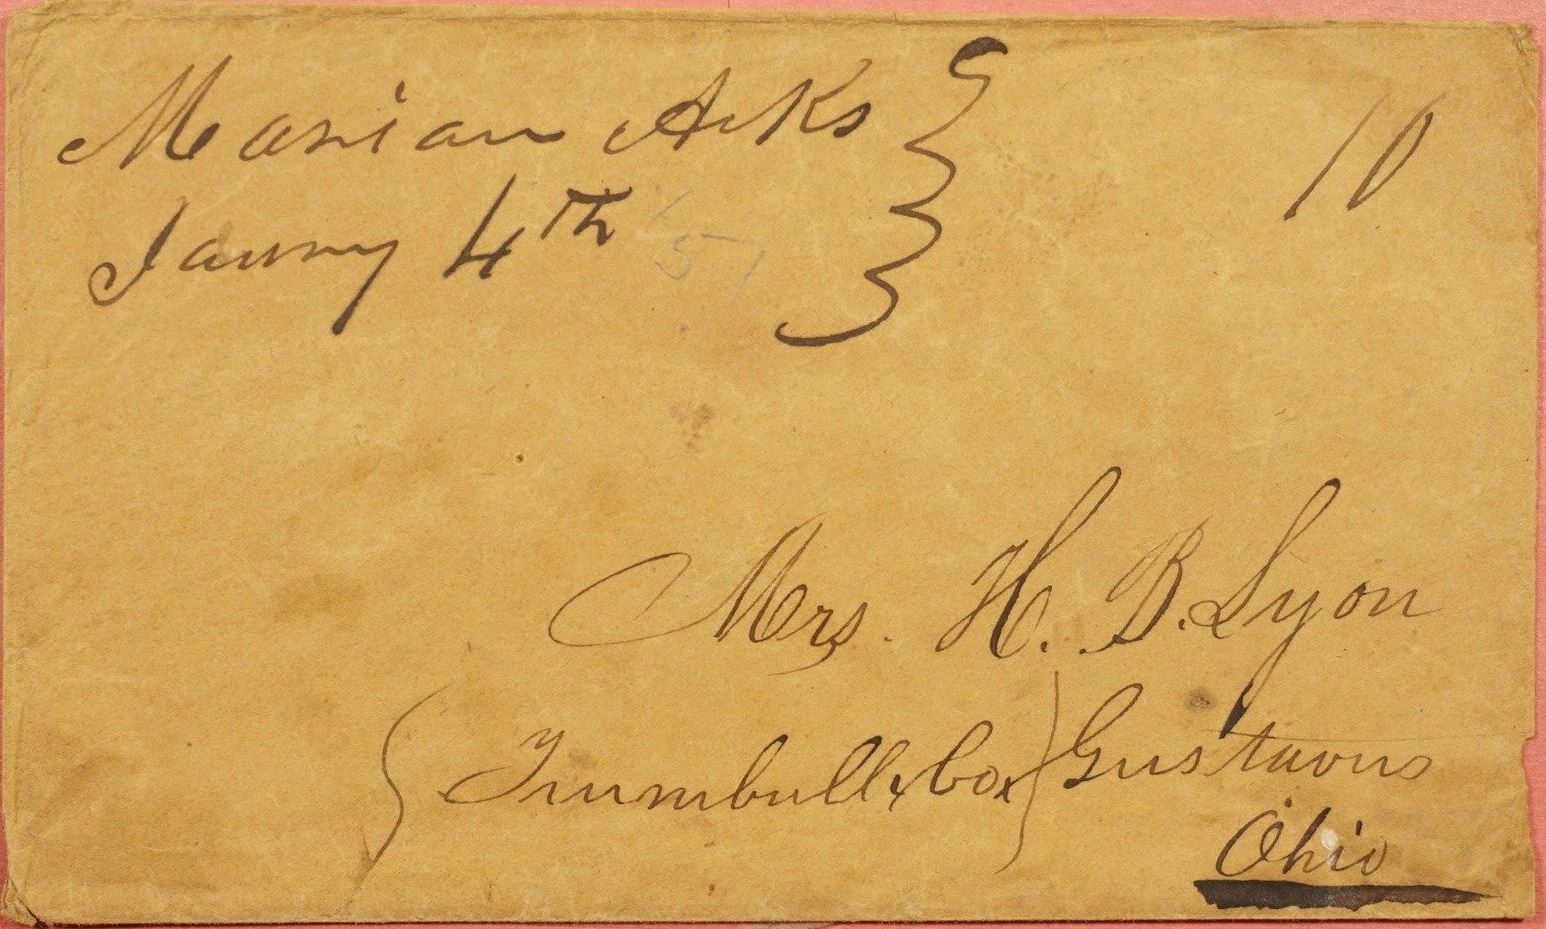 Marian Arks
Janury 4th
51
10
Mrs. H. B. Lyon
Trumbull Co Gustavus
Ohio